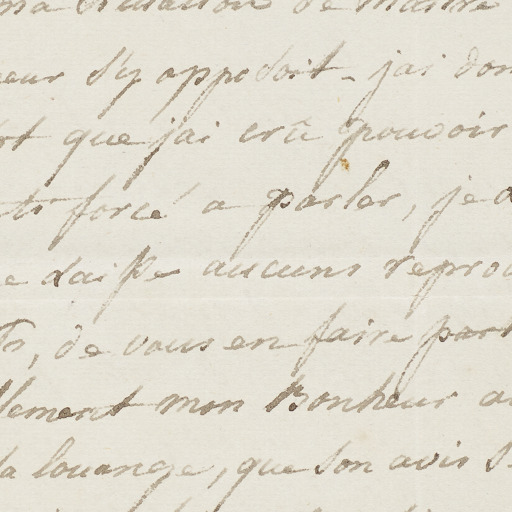 ma situation de maitre
eur s'y opposoit. jai don
rt que jai crû pouvoir
forcé a parler, je d
e laisse aucuns reproc
Ts, de vous en faire part
llement mon Bonheur au
la louange, que son avis se